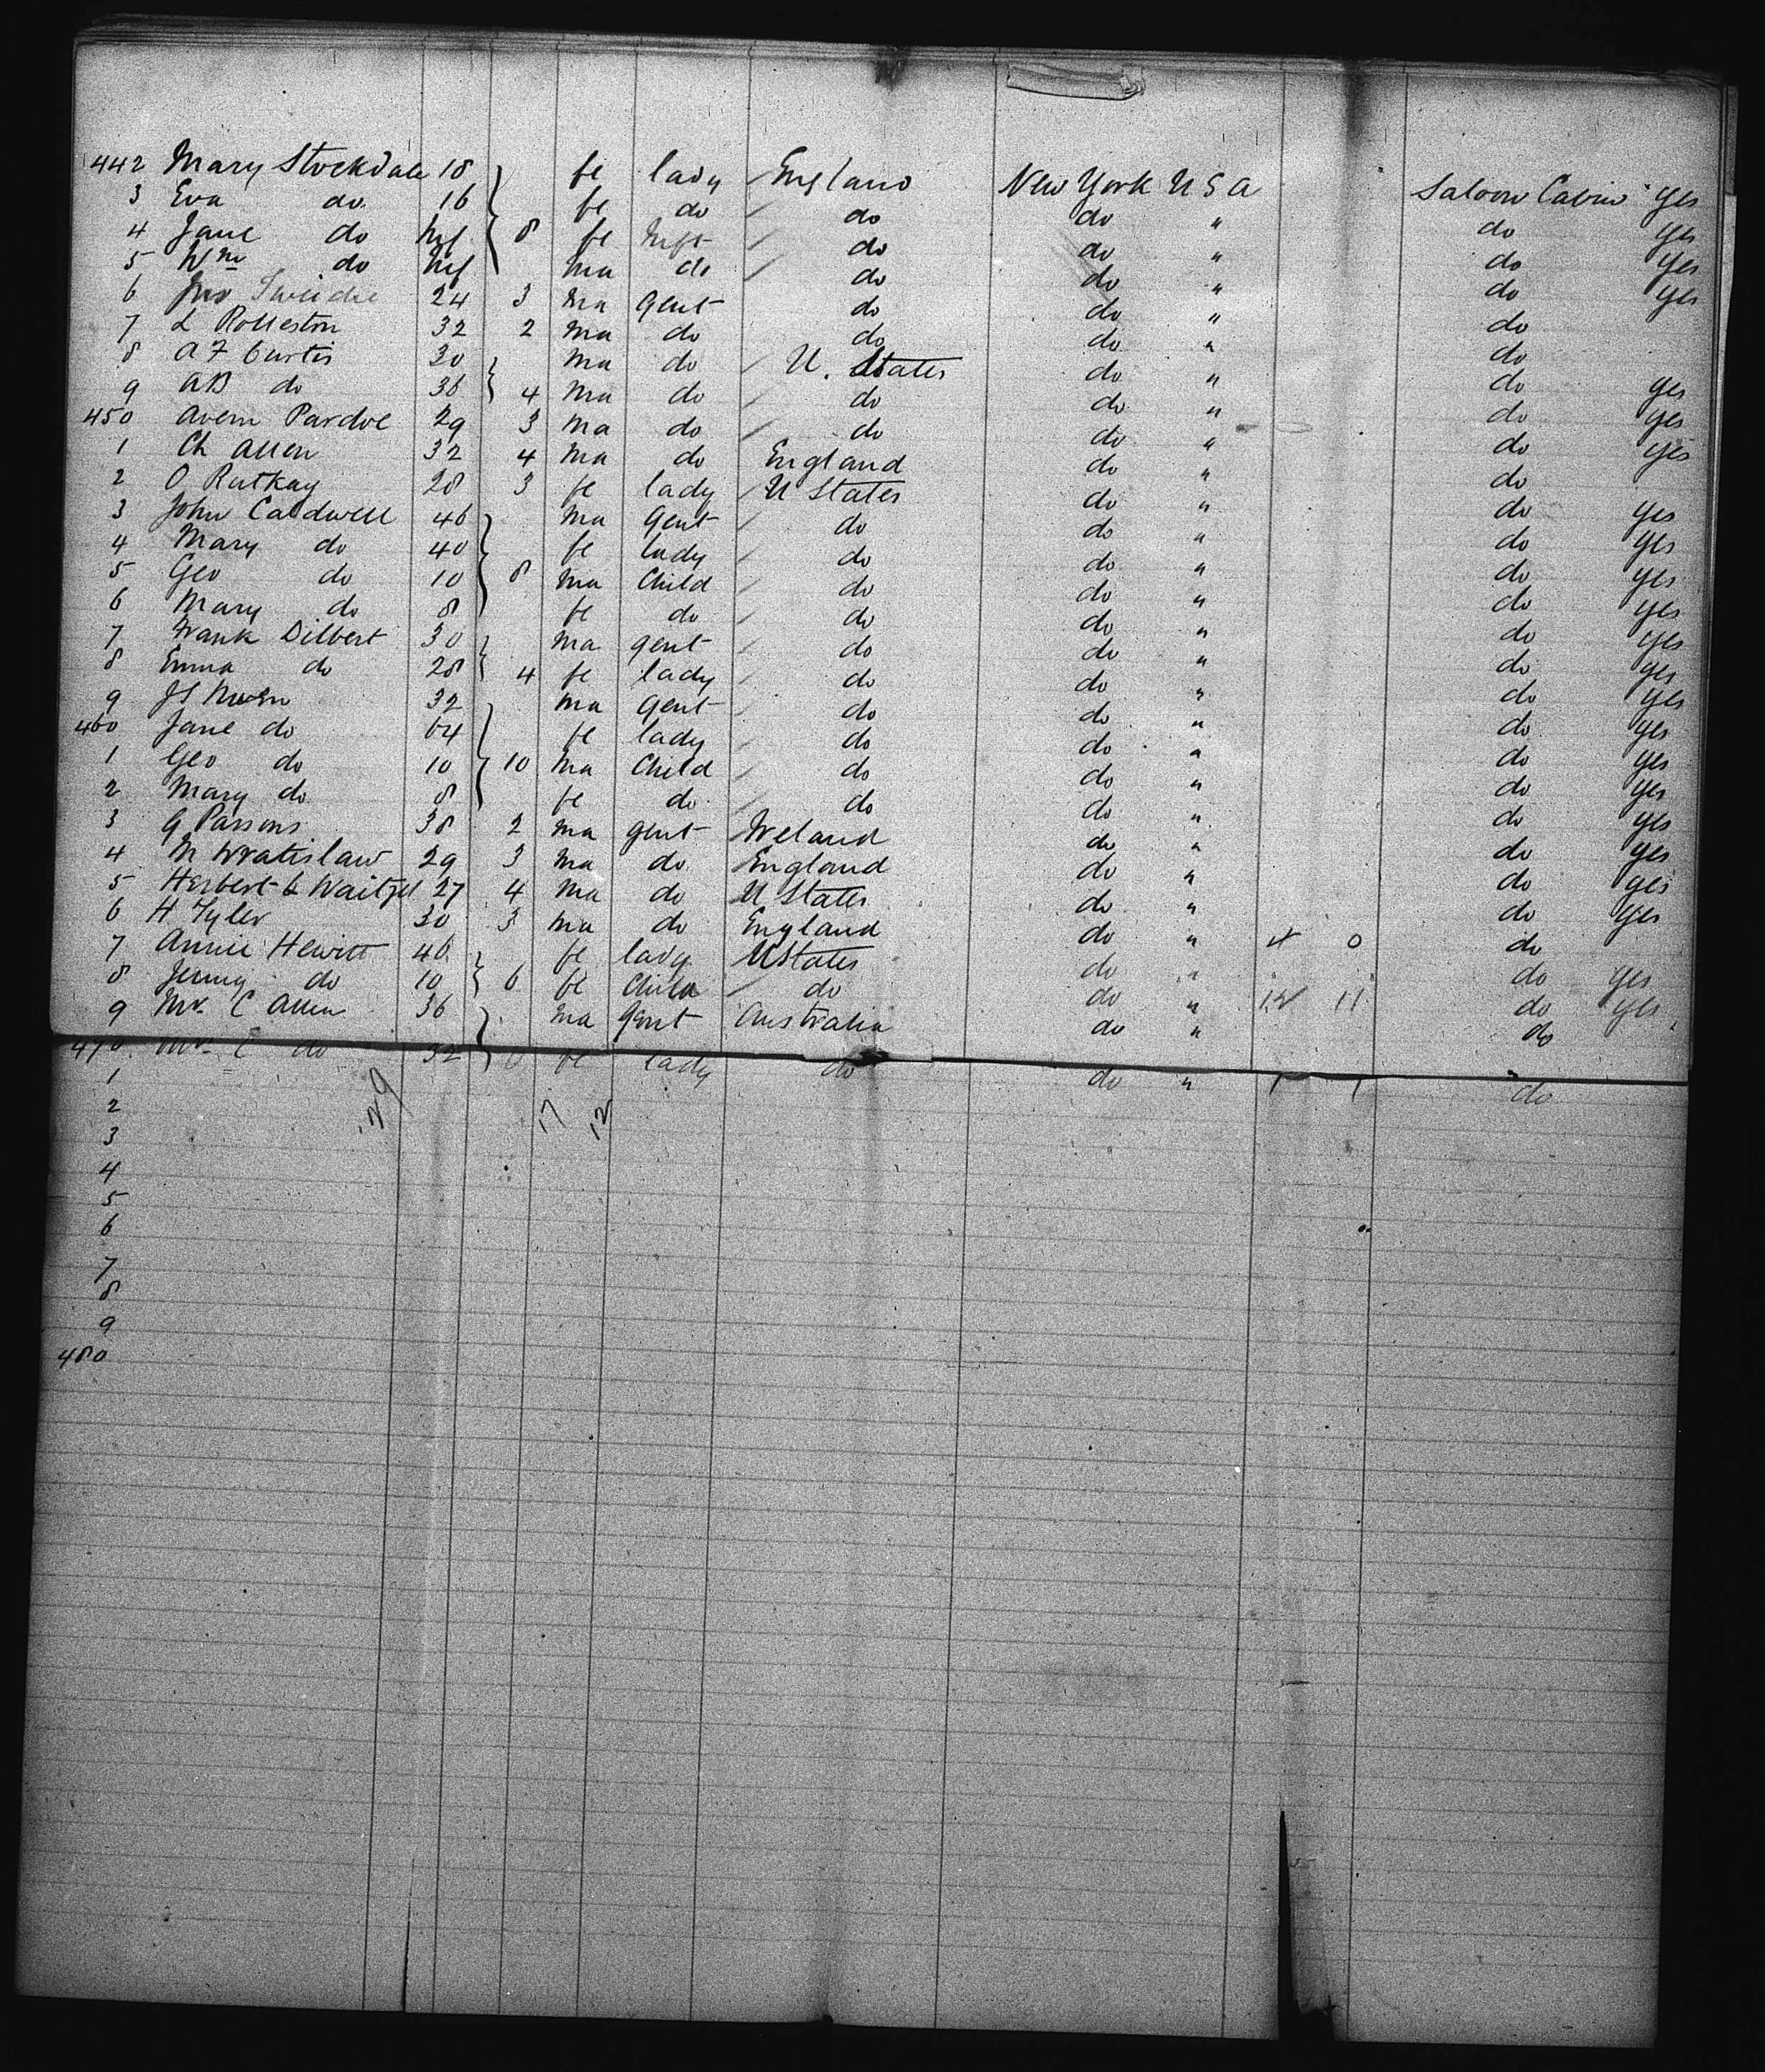 442 Mary Stockdale 18 fe lady England New York U S A Saloon Cabin yes
3 Eva do 16 fe do do do " do yes
4 Jane do Inf 8 fe Inft do do " do yes
5 Wm do Inf ma do do do " do yes
6 Jno 24 3 ma gent do do " do
7 L Rolleston 32 2 ma do do do " do
8 A F Curtis 30 ma do U. States do " do yes
9 AB do 36 4 ma do do do " do yes
450 Pardoe 29 3 ma do do do " do yes
1 Ch Allen 32 4 ma do England do " do
2 O Rutkay 28 3 fe lady U States do " do yes
3 John Caldwell 46 ma Gent do do " do yes
4 Mary do 40 fe lady do do " do yes
5 Geo do 10 8 ma Child do do " do yes
6 Mary do 8 fe do do do " do yes
7 Frank Dilbert 30 ma gent do do " do yes
8 Emma do 28 4 fe lady do do " do yes
9 32 ma Gent do do " do yes
460 Jane do 64 fe lady do do " do yes
1 Geo do 10 10 ma Child do do " do yes
2 Mary do 8 fe do do do " do yes
3 G Parsons 38 2 ma gent Ireland do " do yes
4 M Wratislaw 29 3 ma do England do " do yes
5 Herbert 27 4 ma do U States do " do yes
6 H Tyler 30 3 ma do England do " 4 0 do
7 Annie Hewitt 46 fe lady U States do " do yes
8 Jenny do 10 6 fe Child do do " 12 11 do yes
9 Mr C Allen 36 ma Gent Australia do " do
470 Mrs C do 32 fe lady do do " 1 1 do
1
2 29 17 12
3
4
5
6
7
8
9
480